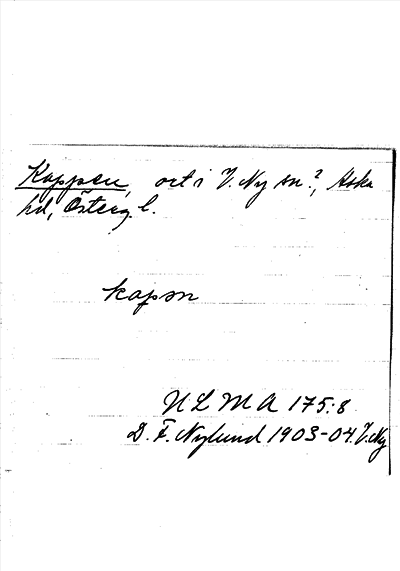 Kappen, ort i V. Ny sn?, Aska
hd, Österg. l.
kapsn
ULMA 175:8
D. F. Nylund 1903-04. V. Ny